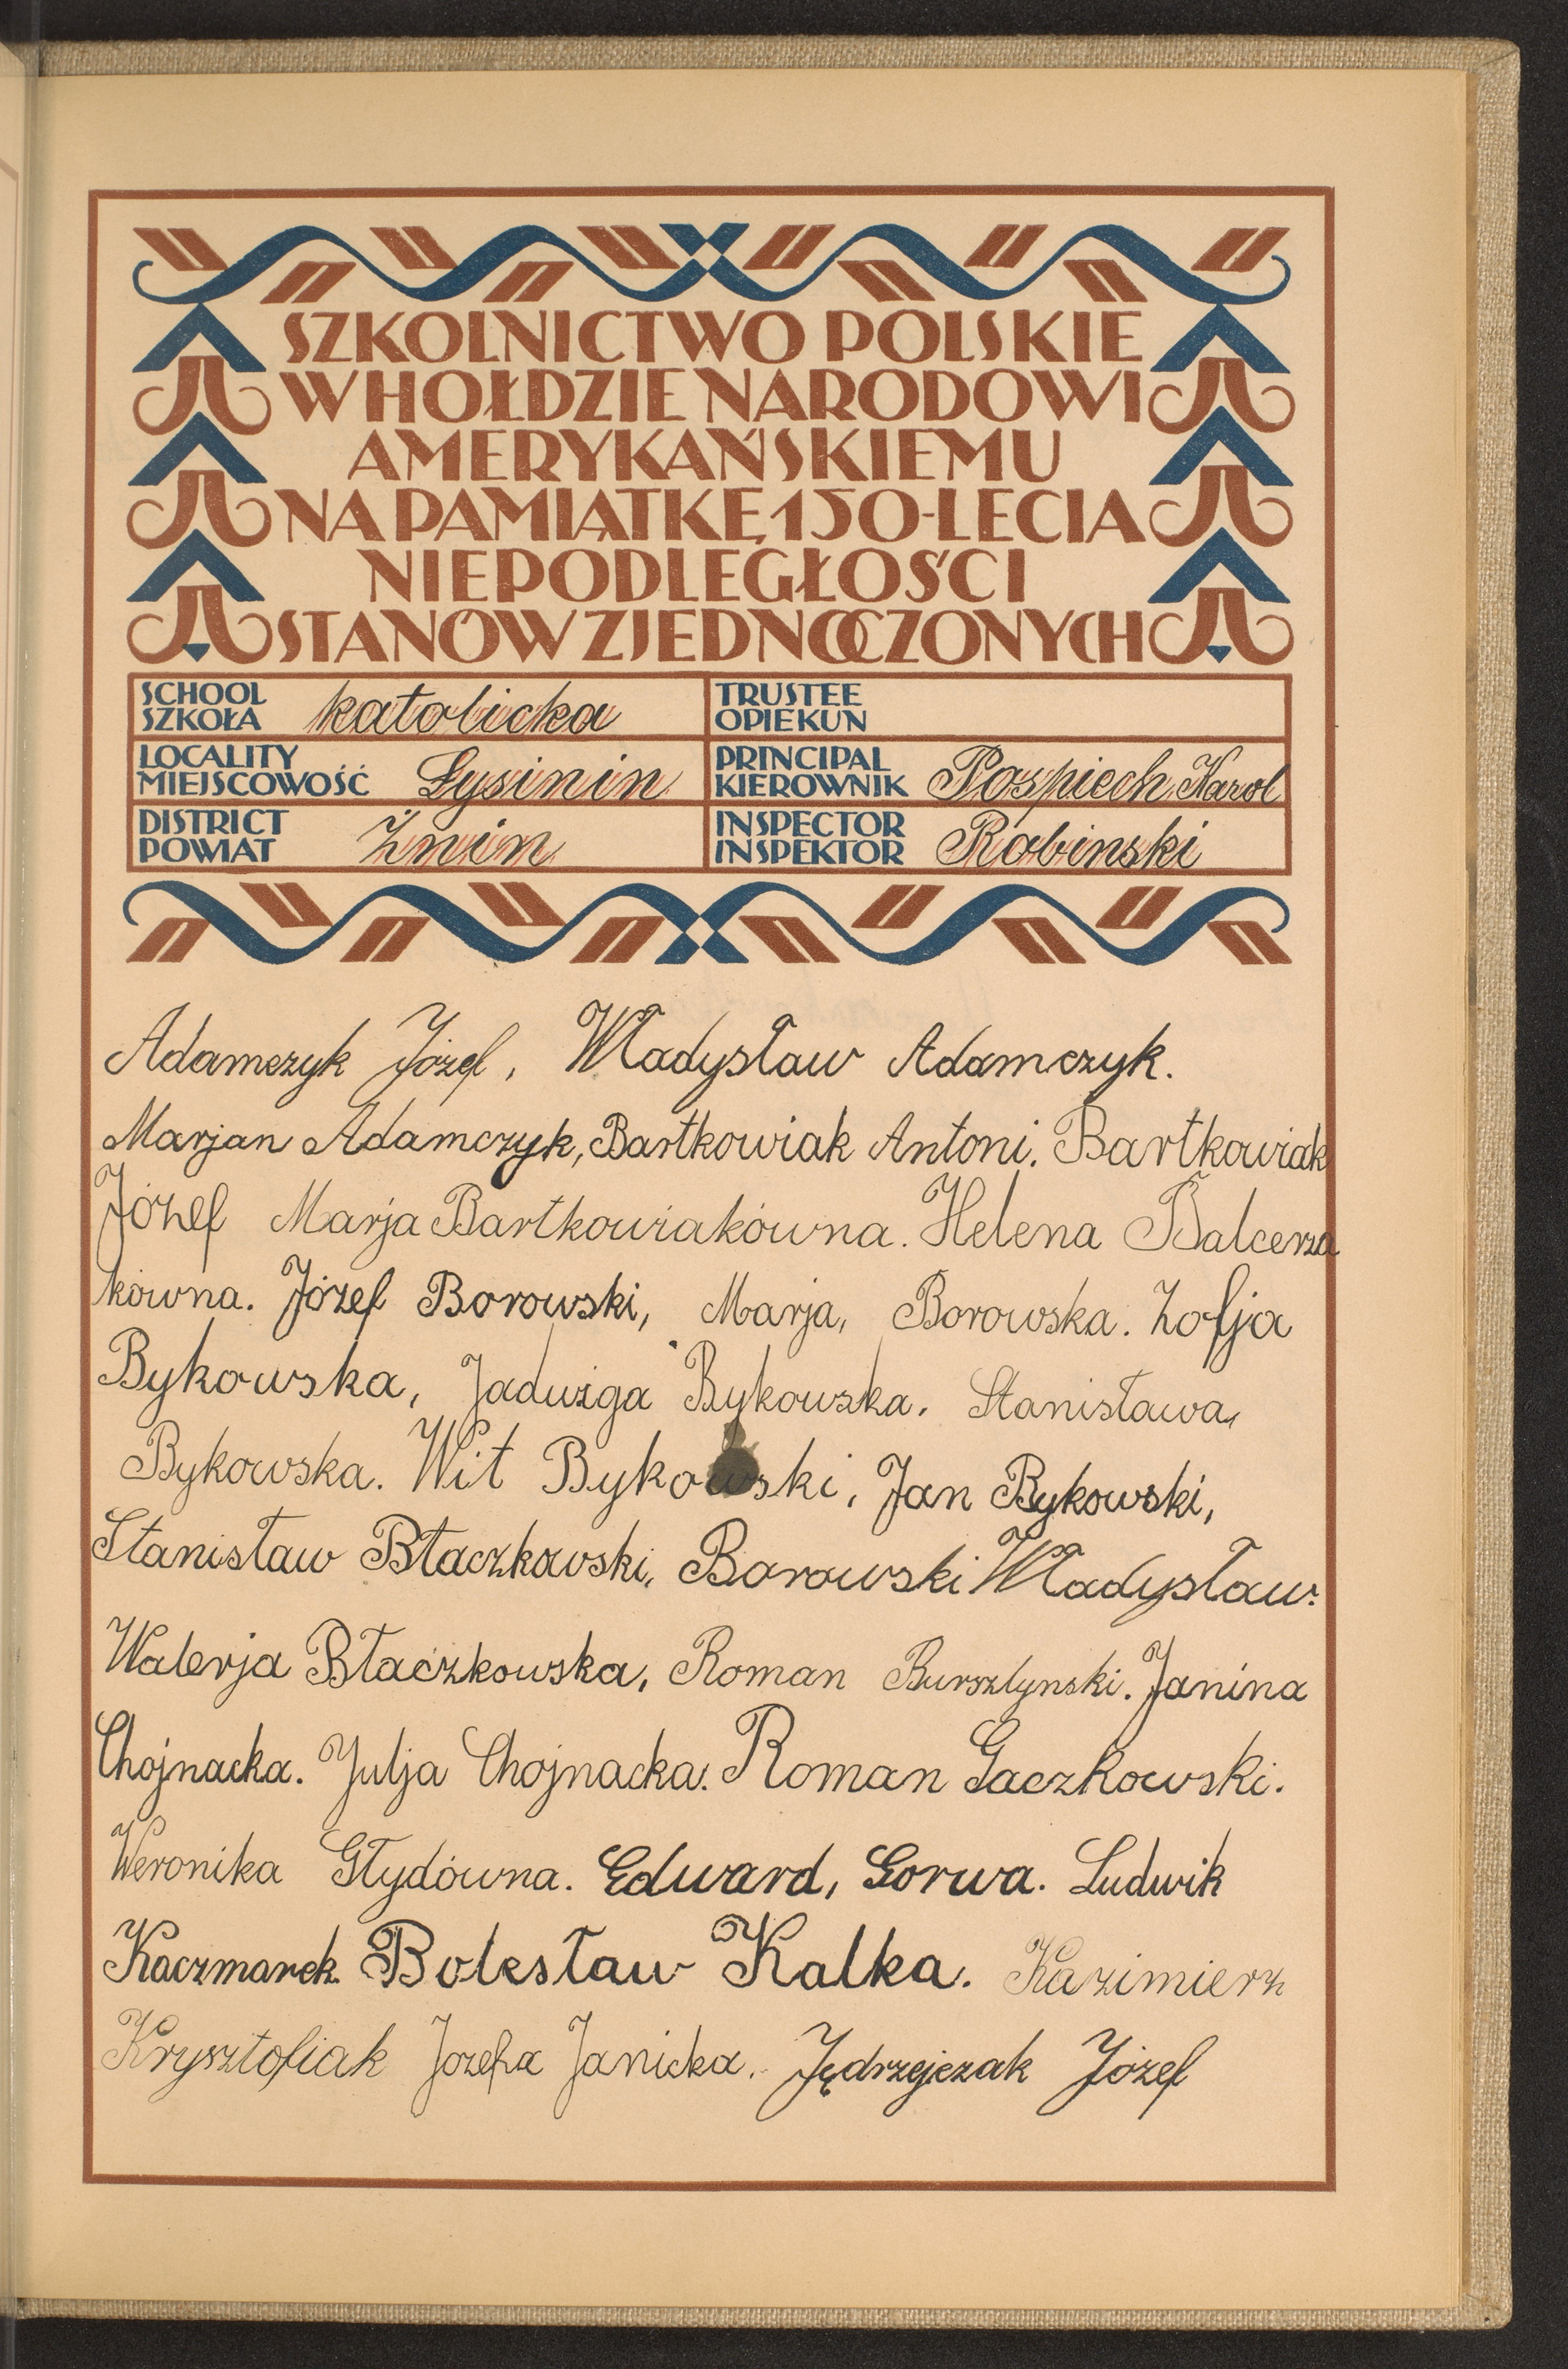 SZKOLNICTWO POLSKIE
W HOŁDZIE NARODOWI
AMERYKAŃSKIEMU
NA PAMIĄTKĘ 150-LECIA
NIEPODLEGŁOŚCI
STANÓW ZJEDNOCZONYCH
SCHOOL
SZKOŁA katolicka
TRUSTEE
OPIEKUN
LOCALITY
MIEJSCOWOŚĆ Łysinin
PRINCIPAL
KIEROWNIK Pospiech Karol
DISTRICT
POWIAT Żnin
INSPECTOR
INSPEKTOR Robinski
Adamczyk Józef, Władysław Adamczyk.
Marjan Adamczyk, Bartkowiak Antoni. Bartkowiak
Józef Marja Bartkowiakówna. Helena Balcerza
kówna. Józef Borowski, Marja, Borowska. Zofja
Bykowska, Jadwiga Bykowska. Stanisława,
Bykowska. Wit Bykowski, Jan Bykowski,
Stanisław Błaczkowski, Borowski Władysław.
Walerja Błaczkowska, Roman Bursztynski. Janina
Chojnacka. Julja Chojnacka. Roman Gaczkowski.
Weronika Głydówna. Edward, Gorwa. Ludwik
Kaczmarek. Bolesław Kalka. Kazimierz
Krysztofiak Jozefa Janicka. Jędrzejczak Józef